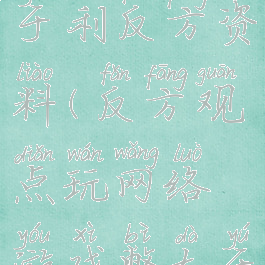 于利反方资
liào fǎn fāng guān
料(反方观
diǎn wán wǎng luò
点玩网络
yóu xì bì dà yú
游戏弊大于